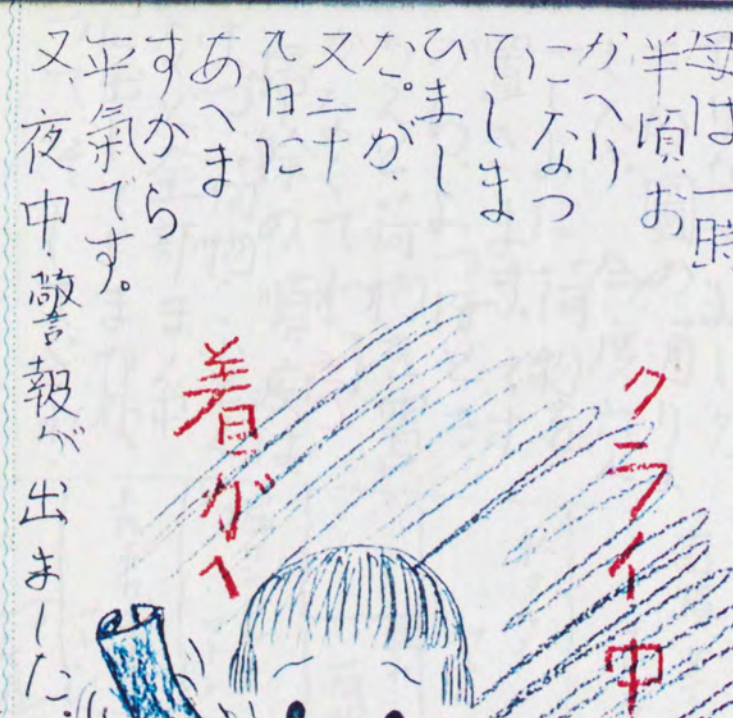 母は一時
半頃、お
かへり
になつ
てしま
ひまし
た。が、
又二十
九日に
あへま
すから
平氣です。
又、夜中、警報が出ました。
クライ中
着ガヘ